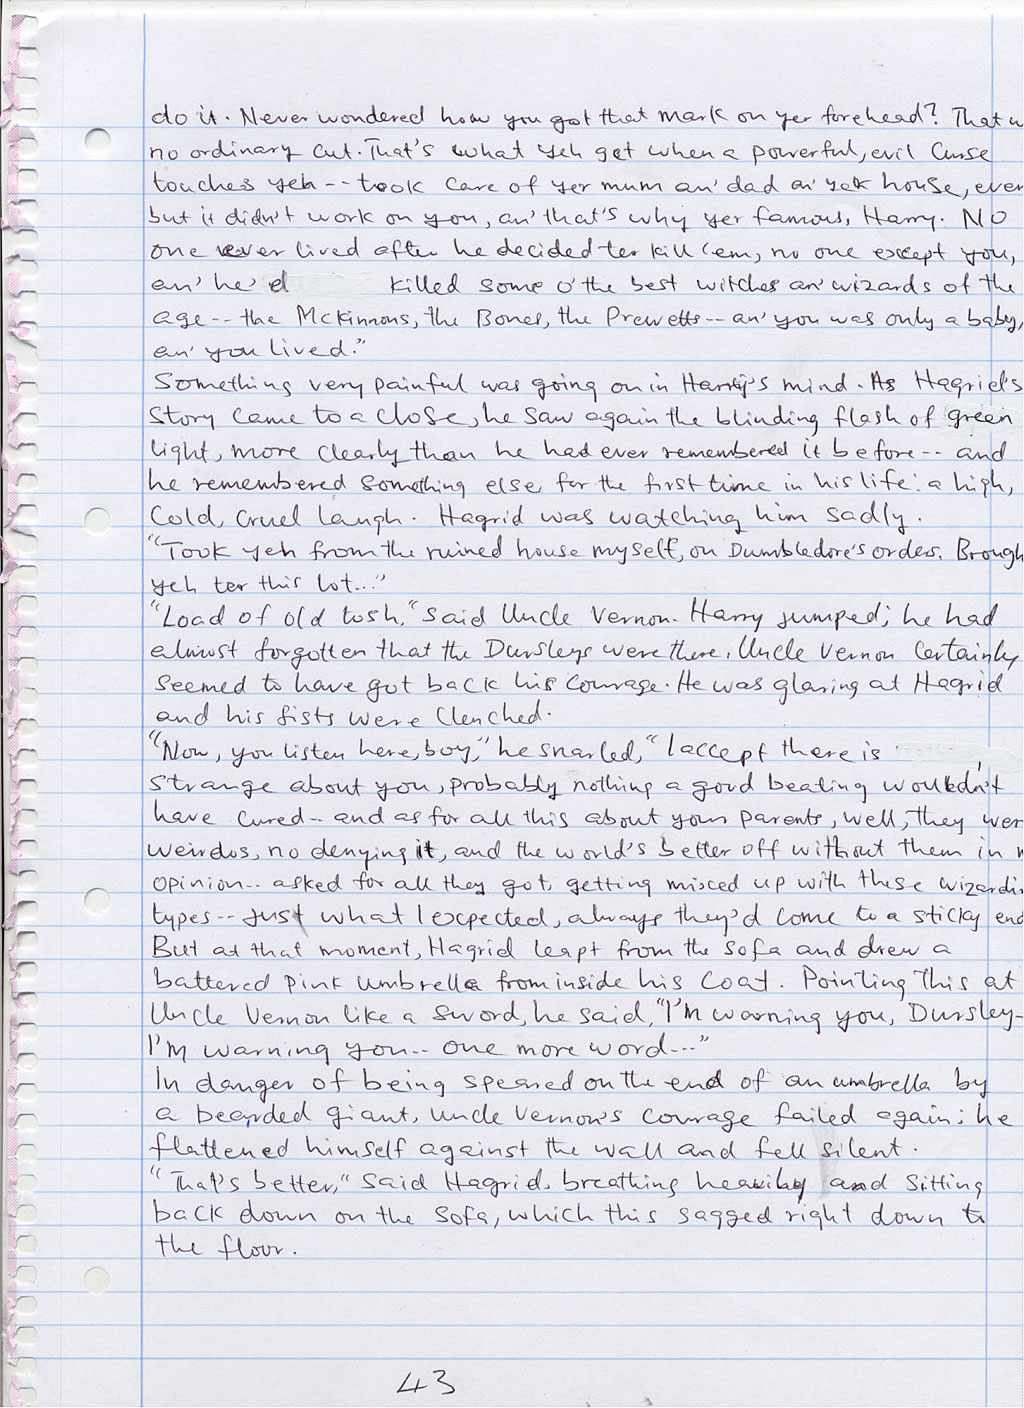 do it. Never wondered how you got that mark on yer forehead? That w
no ordinary cut. That's what yeh get when a powerful, evil curse
touches yeh -- took care of yer mum an' dad an' yeh house, even
but it didn't work on you, an' that's why yer famous, Harry. No
one ever lived after he decided ter kill 'em, no one except you,
an' he'd killed some o' the best witches an' wizards of the
age -- the McKinnons, the Bones, the Prewetts -- an' you was only a baby,
an' you lived."
Something very painful was going on in Harry's mind. As Hagrid's
story came to a close, he saw again the blinding flash of green
light, more clearly than he had ever remembered it before -- and
he remembered something else, for the first time in his life: a high,
cold, cruel laugh. Hagrid was watching him sadly.
"Took yeh from the ruined house myself, on Dumbledore's orders. Brough
yeh ter this lot..."
"Load of old tosh," said Uncle Vernon. Harry jumped; he had
almost forgotten that the Dursleys were there. Uncle Vernon certainly
seemed to have got back his courage. He was glaring at Hagrid
and his fists were clenched.
"Now, you listen here, boy," he snarled, "I accept there is
strange about you, probably nothing a good beating wouldn't
have cured -- and as for all this about your parents, well, they wer
weirdos, no denying it, and the world's better off without them in m
opinion -- asked for all they got, getting mixed up with these wizardin
types -- just what I expected, always they'd come to a sticky end
But at that moment, Hagrid leapt from the sofa and drew a
battered pink umbrella from inside his coat. Pointing this at
Uncle Vernon like a sword, he said, "I'm warning you, Dursley-
I'm warning you -- one more word..."
In danger of being speared on the end of an umbrella by
a bearded giant, Uncle Vernon's courage failed again; he
flattened himself against the wall and fell silent.
"That's better," said Hagrid, breathing heavily and sitting
back down on the sofa, which this sagged right down to
the floor.
43